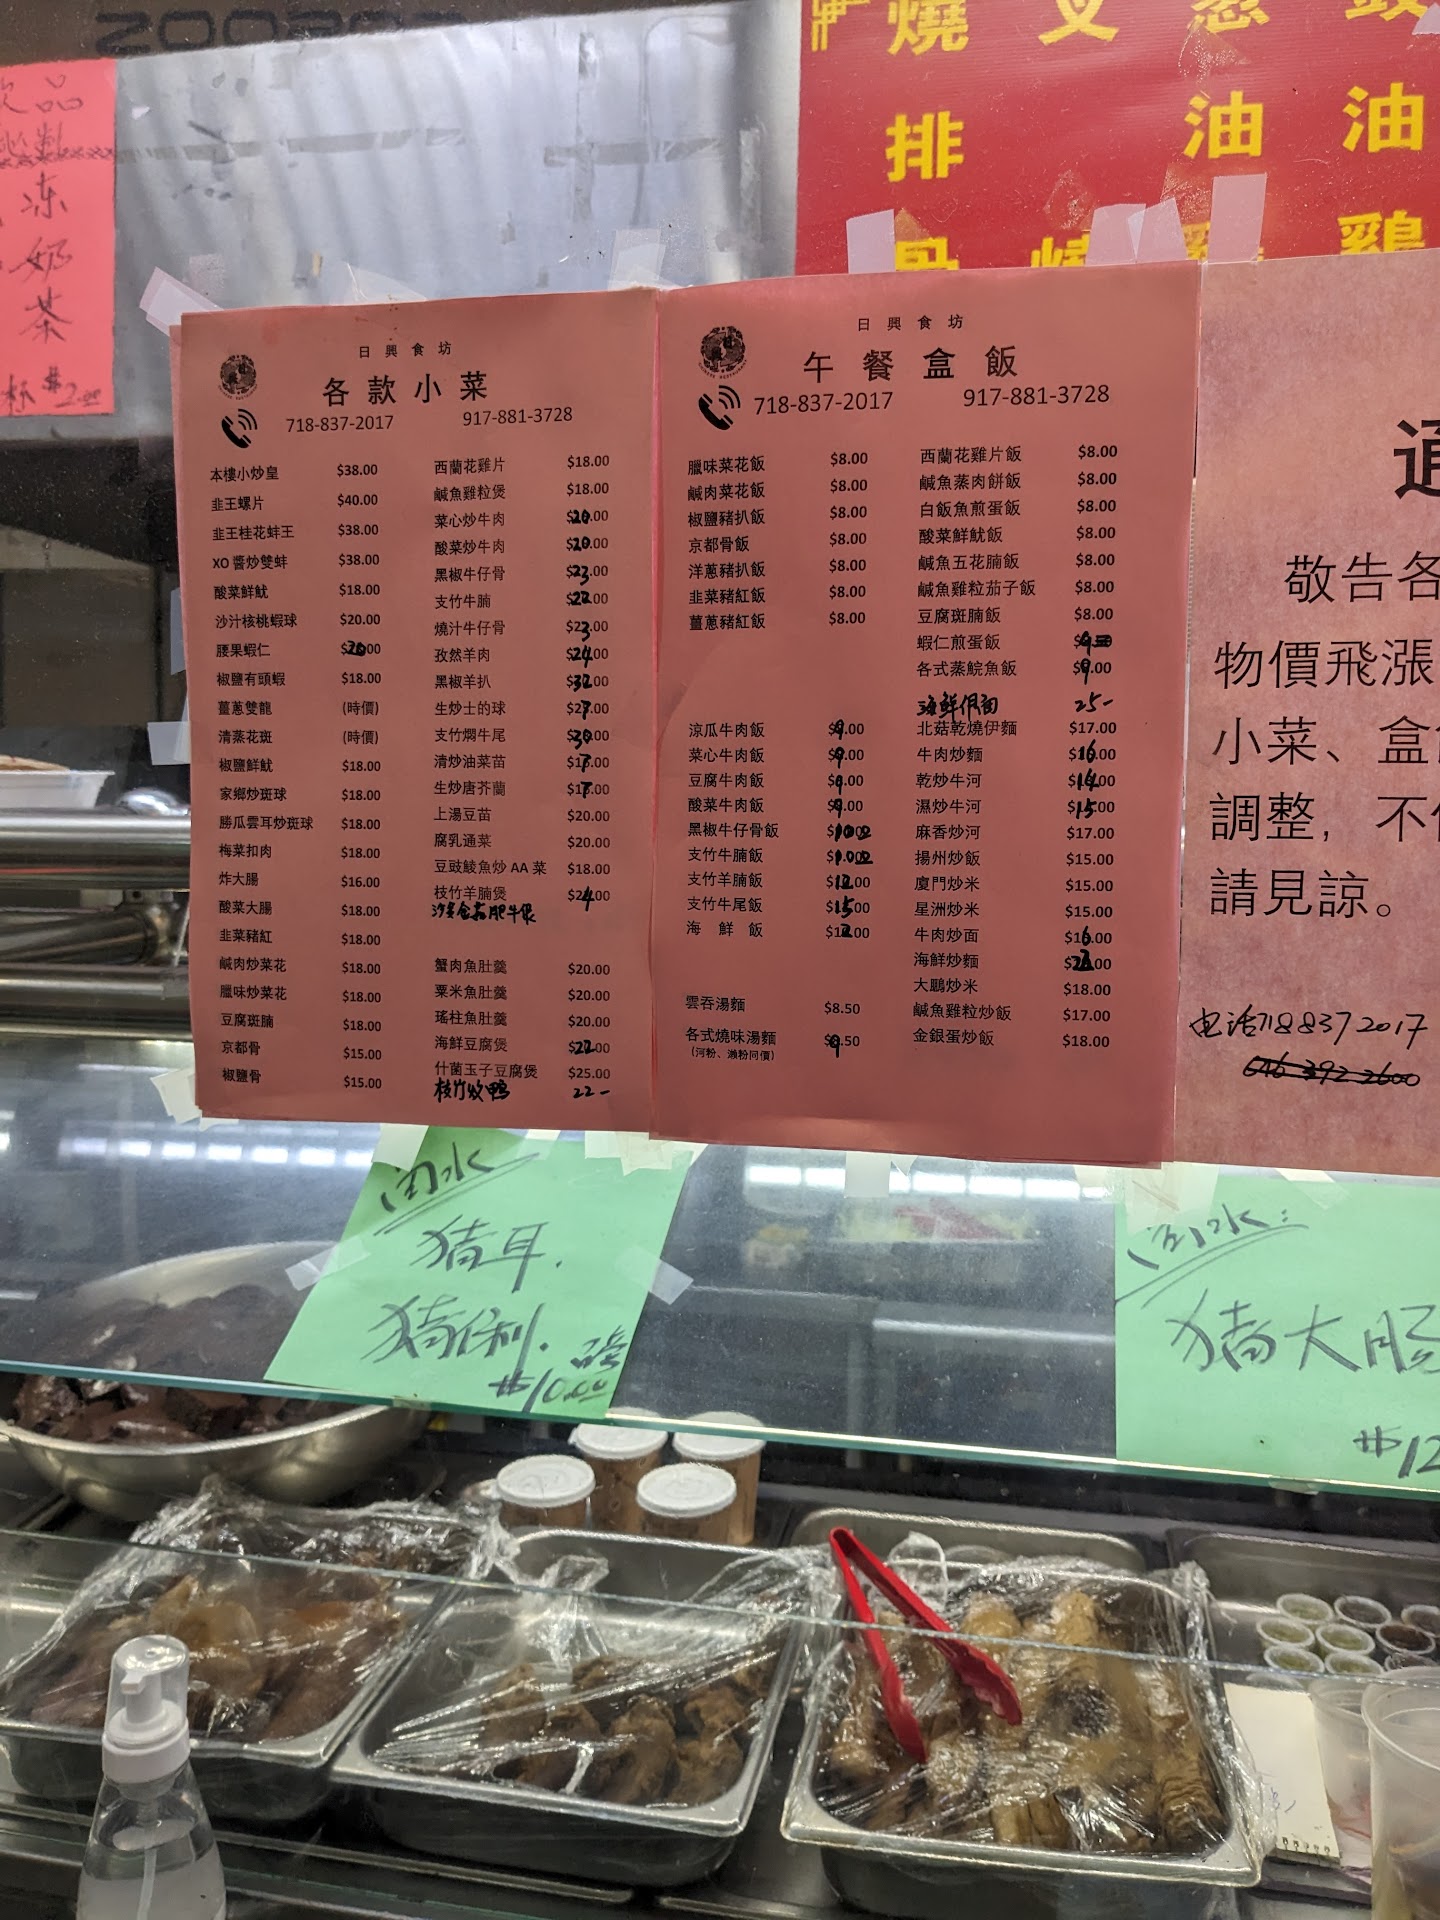 品
冻
奶
茶
杯 $2.00
燒
叉
排
油
油
鷄
日興食坊
各款小菜
718-837-2017 917-881-3728
本樓小炒皇 $38.00
韭王螺片 $40.00
韭王桂花蚌王 $38.00
XO醬炒雙蚌 $38.00
酸菜鮮魷 $18.00
沙汁核桃蝦球 $20.00
腰果蝦仁 $20.00
椒鹽有頭蝦 $18.00
薑蔥雙龍 (時價)
清蒸花斑 (時價)
椒鹽鮮魷 $18.00
家鄉炒斑球 $18.00
勝瓜雲耳炒斑球 $18.00
梅菜扣肉 $18.00
炸大腸 $16.00
酸菜大腸 $18.00
韭菜豬紅 $18.00
鹹肉炒菜花 $18.00
臘味炒菜花 $18.00
豆腐斑腩 $18.00
京都骨 $15.00
椒鹽骨 $15.00
西蘭花雞片 $18.00
鹹魚雞粒煲 $18.00
菜心炒牛肉 $20.00
酸菜炒牛肉 $20.00
黑椒牛仔骨 $23.00
支竹牛腩 $22.00
燒汁牛仔骨 $23.00
孜然羊肉 $24.00
黑椒羊扒 $32.00
生炒士的球 $27.00
支竹燜牛尾 $30.00
清炒油菜苗 $17.00
生炒唐芥蘭 $17.00
上湯豆苗 $20.00
腐乳通菜 $20.00
豆豉鯪魚炒AA菜 $18.00
枝竹羊腩煲 $24.00
肥牛煲
蟹肉魚肚羹 $20.00
粟米魚肚羹 $20.00
瑤柱魚肚羹 $20.00
海鮮豆腐煲 $22.00
什菌玉子豆腐煲 $25.00
枝竹炆鴨 22-
日興食坊
午餐盒飯
718-837-2017 917-881-3728
臘味菜花飯 $8.00
鹹肉菜花飯 $8.00
椒鹽豬扒飯 $8.00
京都骨飯 $8.00
洋蔥豬扒飯 $8.00
韭菜豬紅飯 $8.00
薑蔥豬紅飯 $8.00
涼瓜牛肉飯 $9.00
菜心牛肉飯 $9.00
豆腐牛肉飯 $9.00
酸菜牛肉飯 $9.00
黑椒牛仔骨飯 $10.00
支竹牛腩飯 $10.00
支竹羊腩飯 $12.00
支竹牛尾飯 $15.00
海鮮飯 $12.00
雲吞湯麵 $8.50
各式燒味湯麵 $9.50
(河粉、瀨粉同價)
西蘭花雞片飯 $8.00
鹹魚蒸肉餅飯 $8.00
白飯魚煎蛋飯 $8.00
酸菜鮮魷飯 $8.00
鹹魚五花腩飯 $8.00
鹹魚雞粒茄子飯 $8.00
豆腐斑腩飯 $8.00
蝦仁煎蛋飯 $9.00
各式蒸鯇魚飯 $9.00
海鮮伊面 25-
北菇乾燒伊麵 $17.00
牛肉炒麵 $16.00
乾炒牛河 $14.00
濕炒牛河 $15.00
麻香炒河 $17.00
揚州炒飯 $15.00
廈門炒米 $15.00
星洲炒米 $15.00
牛肉炒面 $16.00
海鮮炒麵 $22.00
大鵬炒米 $18.00
鹹魚雞粒炒飯 $17.00
金銀蛋炒飯 $18.00
通
敬告各
物價飛漲
小菜、盒
調整，不
請見諒。
电话718 837 2017
646 392 2600
卤水
猪耳.
猪俐.
$10.00磅
卤水:
猪大肠
$12